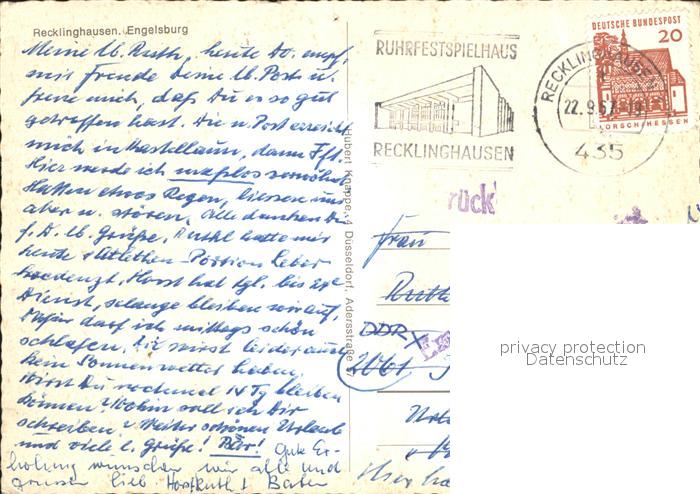 Recklinghausen. Engelsburg
Meine lb. Ruth, heute Do. empf.
mir Freude Deine lb. Post u.
freue mich, daß Du es so gut
getroffen hast. Die u. Post erreicht
mich in Kastellaun, dann Fft.
Hier werde ich maßlos verwöhnt
Hatten etwas Regen, liessen uns
aber n. stören, Alle danken Dir
f. D. lb. Grüße. Ruthl hatte mir
heute 1 Athleten-Portion Leber
Horst hat tgl. bis
Dienst, solange bleiben wir auf.
Dafür darf ich mittags schön
schlafen. Du wirst leider auch
kein Sonnenwetter haben.
Wirst Du nochmal 14 Tg bleiben
können? Wohin soll ich Dir
schreiben? Weiter schönen Urlaub
und viele l. Grüße! Gute Er-
holung wünschen wir alle und
grüssen lieb. Horst Ruth +
Hubert Knappe, 4 Düsseldorf, Adersstraße
RUHRFESTSPIELHAUS
RECKLINGHAUSEN
RECKLINGHAUSEN
22.9.67
435
DEUTSCHE BUNDESPOST
20
LORSCH/HESSEN
rück
Frau
Ruth
DDR
privacy protection
Datenschutz